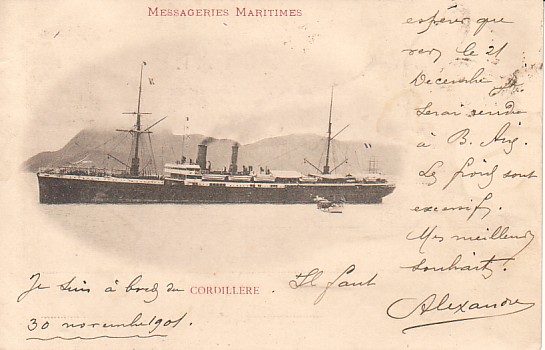 MESSAGERIES MARITIMES
Je suis à bord du CORDILLÈRE. Il faut
30 novembre 1901.
espérer que
vers le 21
Décembre
serai rendu
à B. Aig.
Les froids sont
excessifs.
Mes meilleurs
souhaits.
Alexandre